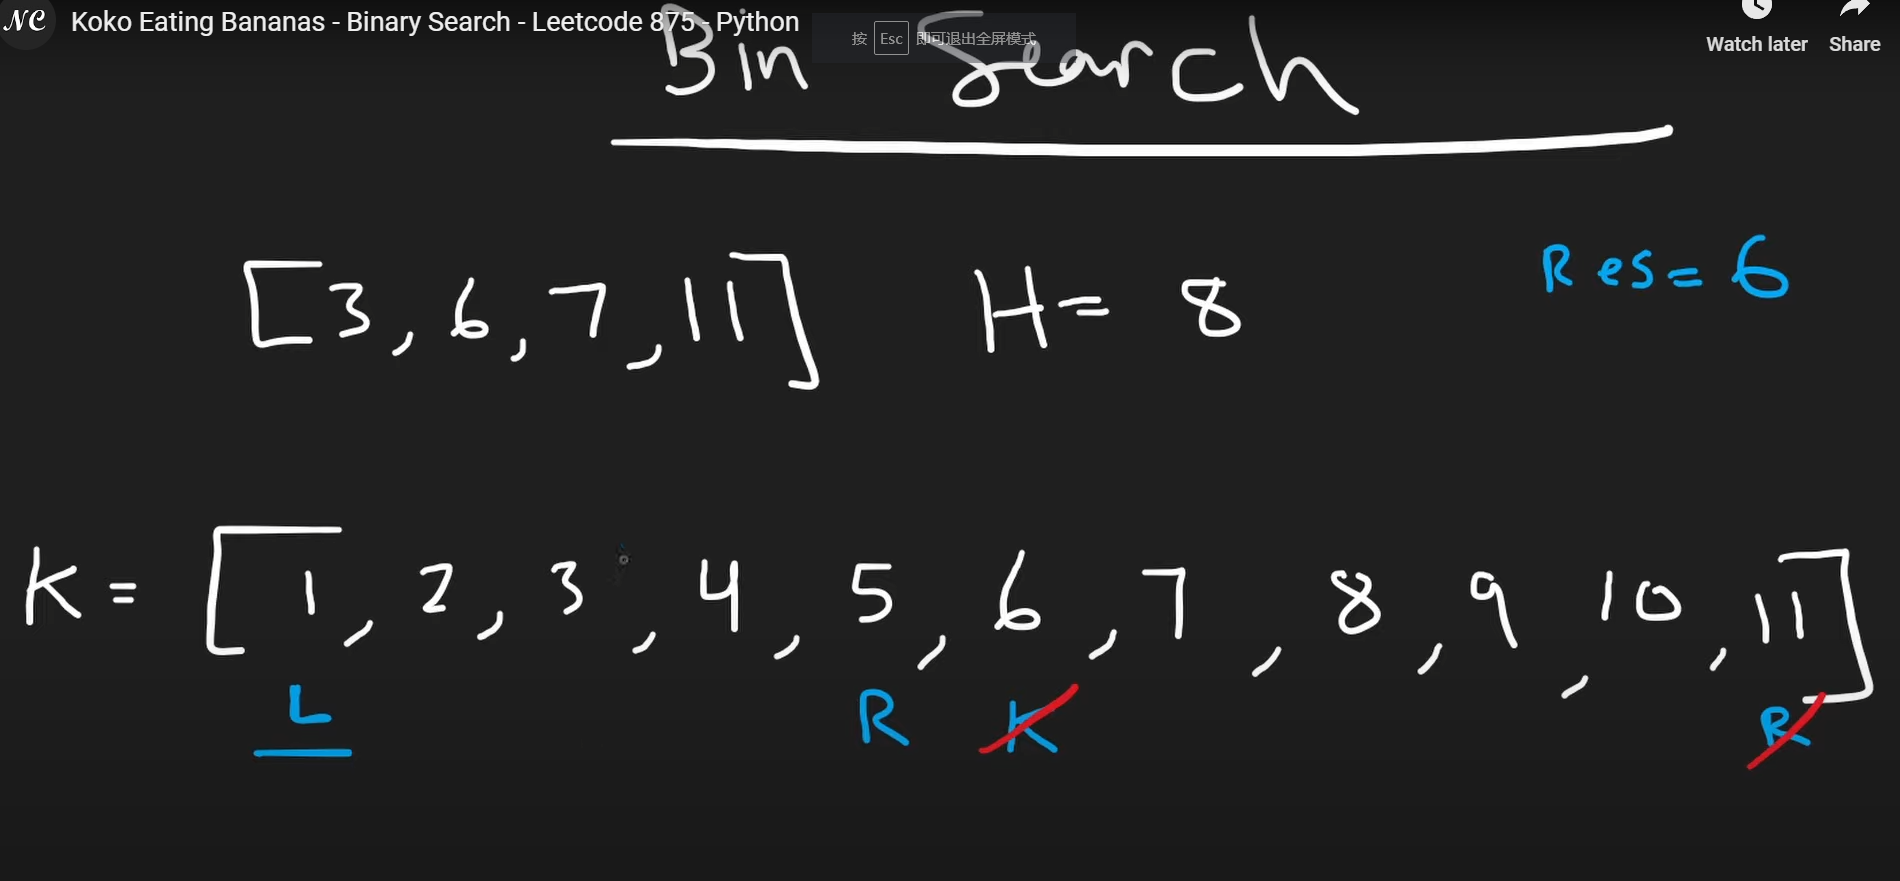 NC Koko Eating Bananas - Binary Search - Leetcode 875 - Python
按 Esc 即可退出全屏模式
Watch later Share
Bin Search
[3, 6, 7, 11] H= 8
Res= 6
K = [1, 2, 3, 4, 5, 6, 7, 8, 9, 10, 11]
L R K R